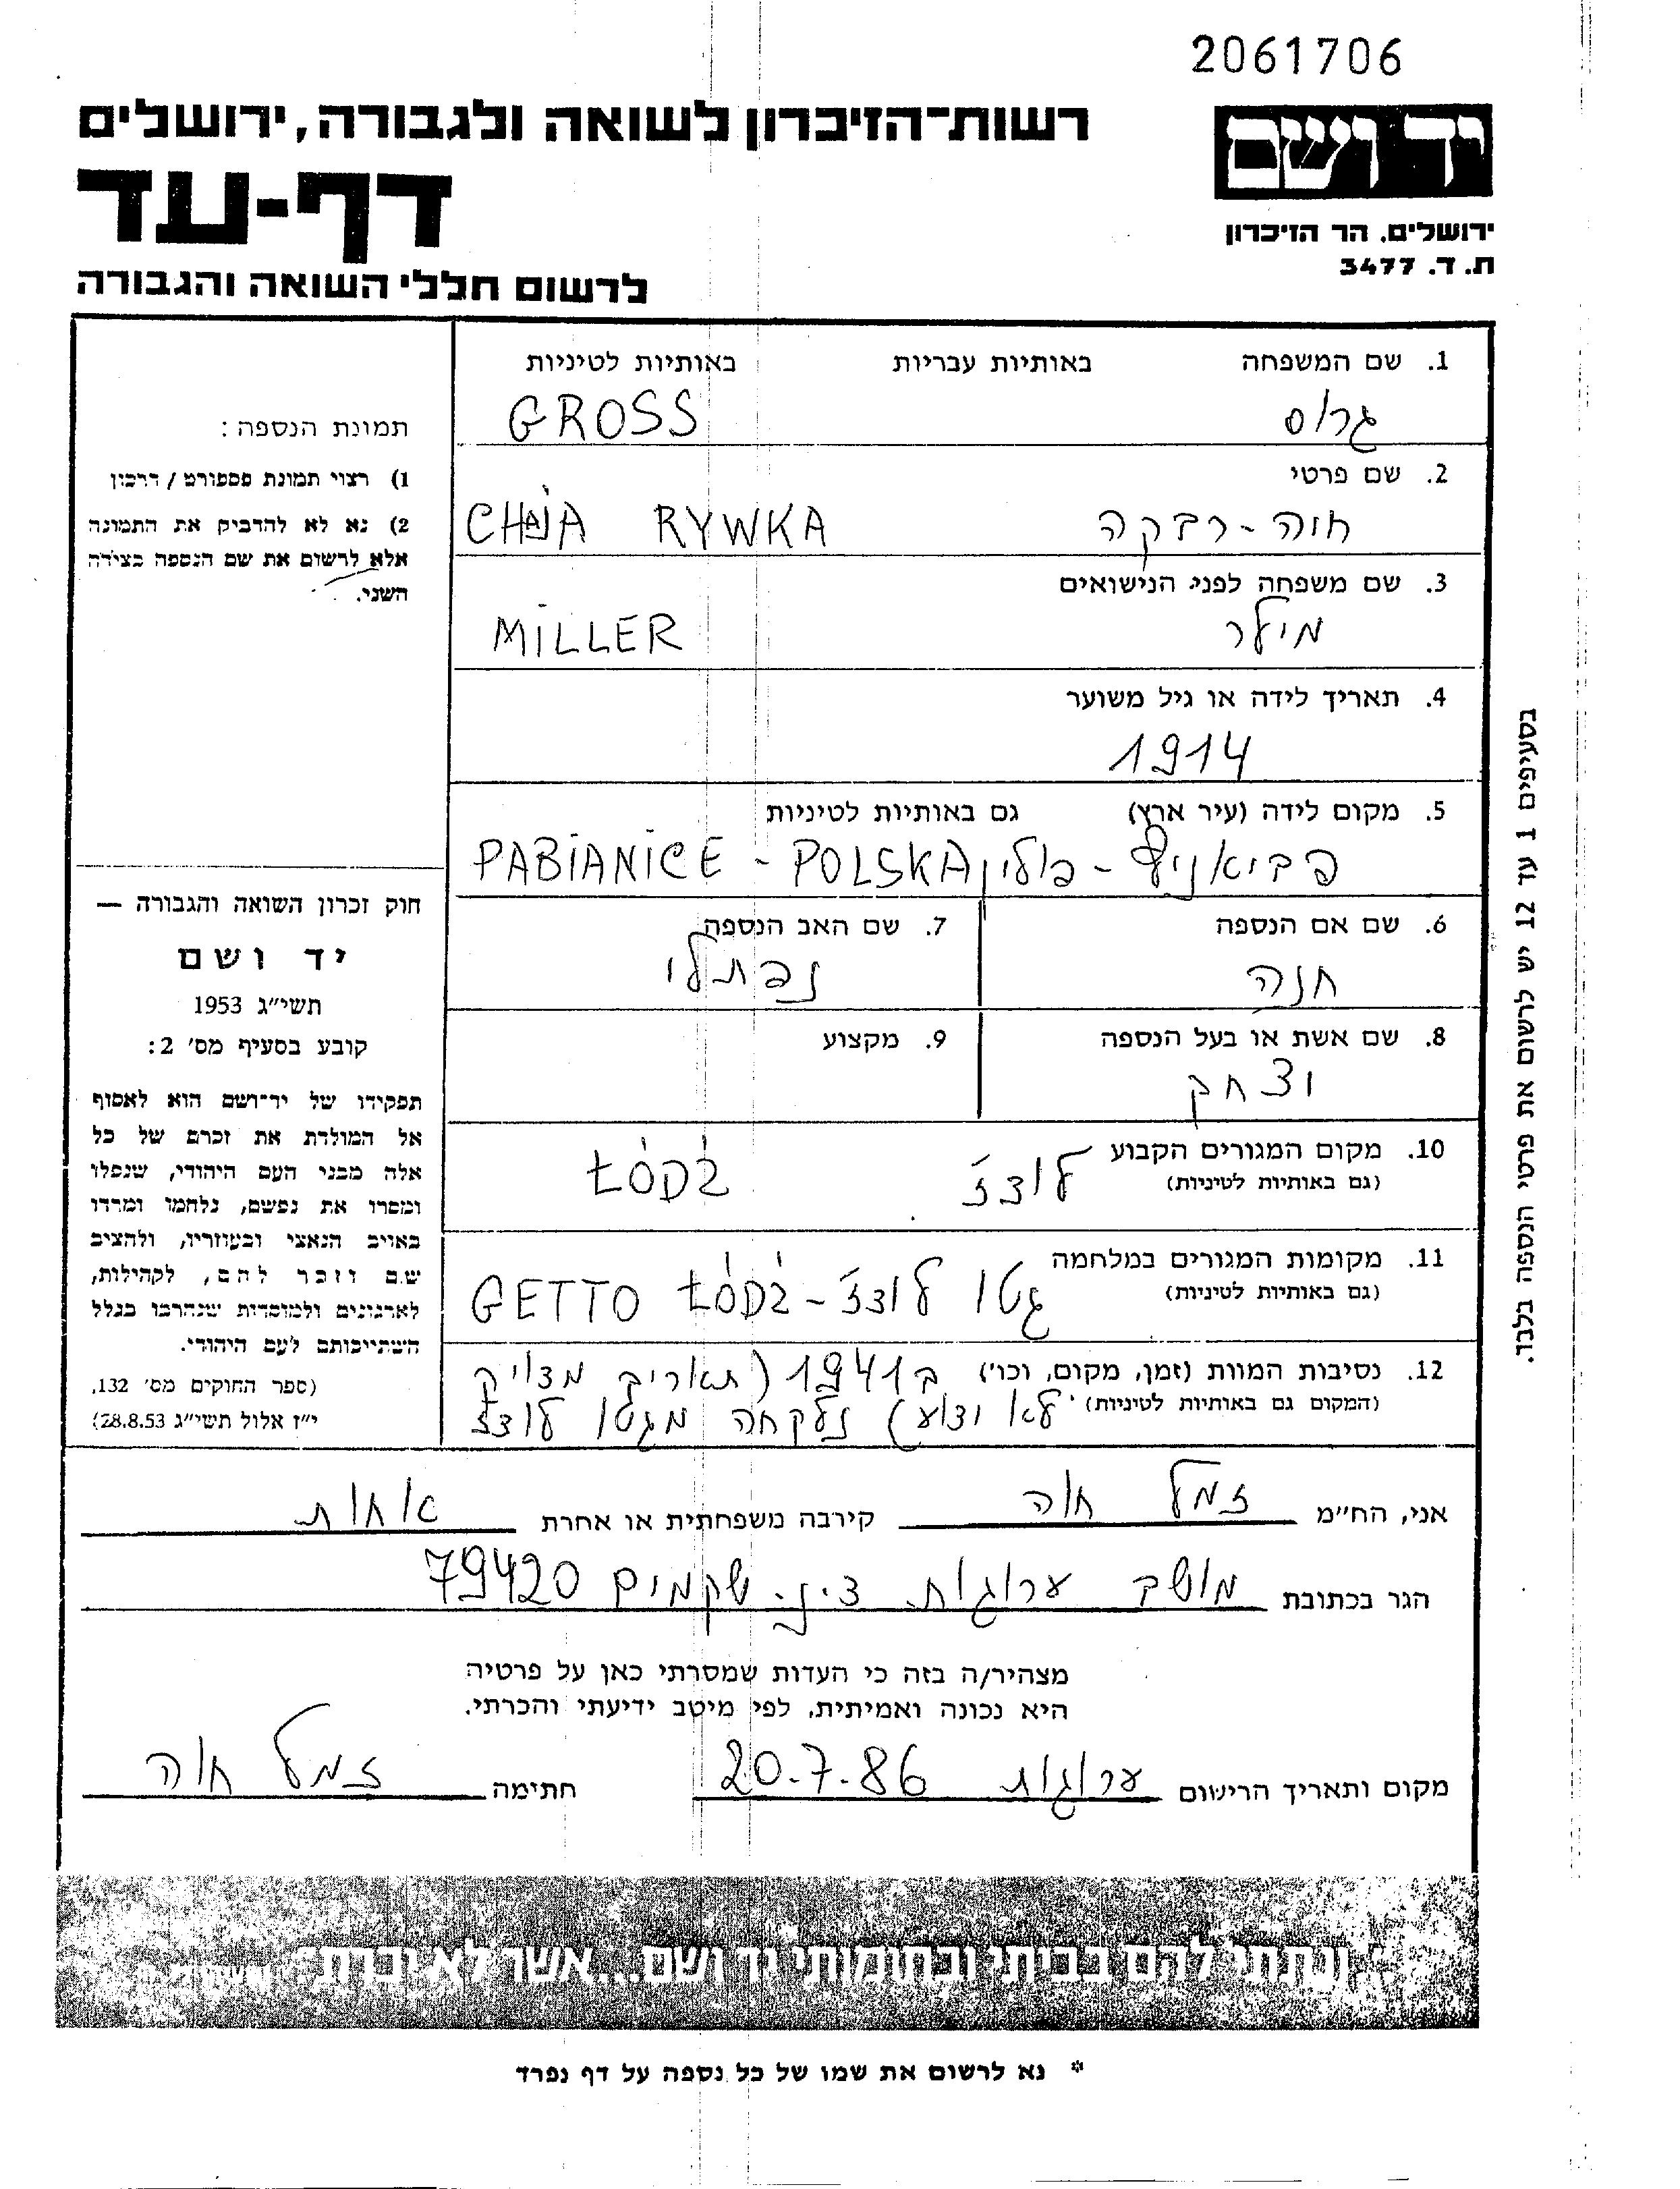 2061706
רשות־הזיכרון לשואה ולגבורה, ירושלים
יד ושם
דף-עד
ירושלים, הר הזיכרון
ת. ד. 3477
לרשום חללי השואה והגבורה
1. שם המשפחה באותיות עבריות באותיות לטיניות
גרוס GROSS
2. שם פרטי
חוה-רבקה CHAJA RYWKA
3. שם משפחה לפני הנישואים
מילר MILLER
4. תאריך לידה או גיל משוער
1914
5. מקום לידה (עיר ארץ) גם באותיות לטיניות
פביאניץ - פולין PABIANICE - POLSKA
6. שם אם הנספה
חנה
7. שם האב הנספה
נפתלי
8. שם אשת או בעל הנספה
יצחק
9. מקצוע
10. מקום המגורים הקבוע
(גם באותיות לטיניות)
לודז' ŁÓDŹ
11. מקומות המגורים במלחמה
(גם באותיות לטיניות)
גטו לודז' - GETTO ŁÓDŹ
12. נסיבות המוות (זמן, מקום, וכו') ב1941 (תאריך מדויק
(המקום גם באותיות לטיניות) לא ידוע) נלקחה מגטו לודז'
תמונת הנספה :
1) רצוי תמונת פספורט / דרכון
2) נא לא להדביק את התמונה
אלא לרשום את שם הנספה בצידה
השני.
חוק זכרון השואה והגבורה —
יד ושם
תשי״ג 1953
קובע בסעיף מס׳ 2:
תפקידו של יד־ושם הוא לאסוף
אל המולדת את זכרם של כל
אלה מבני העם היהודי, שנפלו
ומסרו את נפשם, נלחמו ומרדו
באויב הנאצי ובעוזריו, ולהציב
שם וזכר להם, לקהילות,
לארגונים ולמוסדות שנהרבו בגלל
השתייכותם לעם היהודי.
(ספר החוקים מס׳ 132,
י״ז אלול תשי״ג 28.8.53)
בסעיפים 1 עד 12 יש לרשום את פרטי הנספה בלבד.
אני, הח״מ זמל חוה קירבה משפחתית או אחרת אחות
הגר בכתובת מושב ערוגות ד.נ. שקמים 79420
מצהיר/ה בזה כי העדות שמסרתי כאן על פרטיה
היא נכונה ואמיתית, לפי מיטב ידיעתי והכרתי.
מקום ותאריך הרישום ערוגות 20.7.86 חתימה זמל חוה
ונתתי להם בביתי ובחומותי יד ושם...אשר לא יכרת
* נא לרשום את שמו של כל נספה על דף נפרד